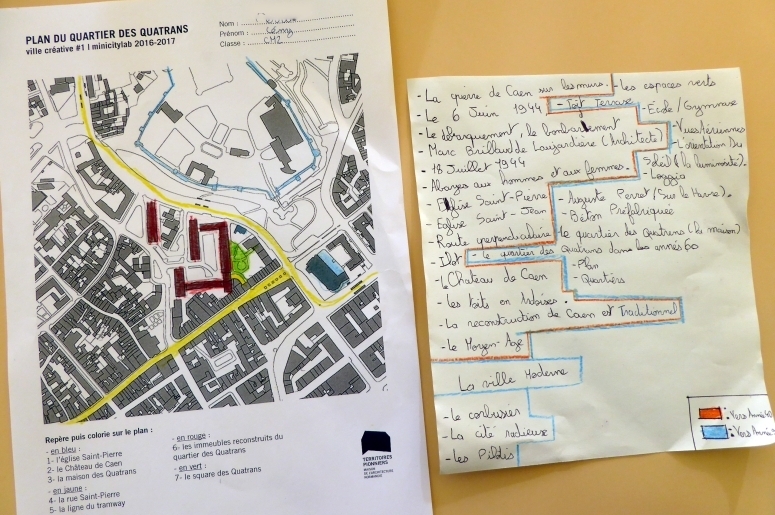 PLAN DU QUARTIER DES QUATRANS
ville créative #1 I minicitylab 2016-2017
Nom :
Prénom : Rémy
Classe : CM2
Repère puis colorie sur le plan :
- en bleu :
1- l'église Saint-Pierre
2- le Château de Caen
3- la maison des Quatrans
- en jaune :
4- la rue Saint-Pierre
5- la ligne du tramway
- en rouge :
6- les immeubles reconstruits du
quartier des Quatrans
- en vert :
7- le square des Quatrans
TERRITOIRES
PIONNIERS
MAISON
DE L'ARCHITECTURE
NORMANDIE
- La guerre de Caen sur les murs. - les espaces verts
- Le 6 Juin 1944 - Toit Terrasse - École/Gymnase
- Le débarquement, le bombardement - Vues Aériennes
- Marc Brillaud de Laujardière (Architecte) - L'orientation Du
- 18 Juillet 1944 Soleil (la luminosité).
- Abayes aux hommes et aux femmes. - Loggia
- Église Saint-Pierre - Auguste Perret/(Sur le Havre).
- Eglise Saint-Jean - Béton Préfabriquée
- Route perpendiculaire - le quartier des Quatrans (la maison)
- Ilot - le quartier des quatrans dans les années 60
- Le Château de Caen - Plan
- Les toits en Ardoises. - Quartiers
- La reconstruction de Caen est Traditionnel
- Le Moyen-Age
La ville Moderne
- Le corbusier
- La cité radieuse
- Les Pilotis
: Vers Année 40
: Vers Année